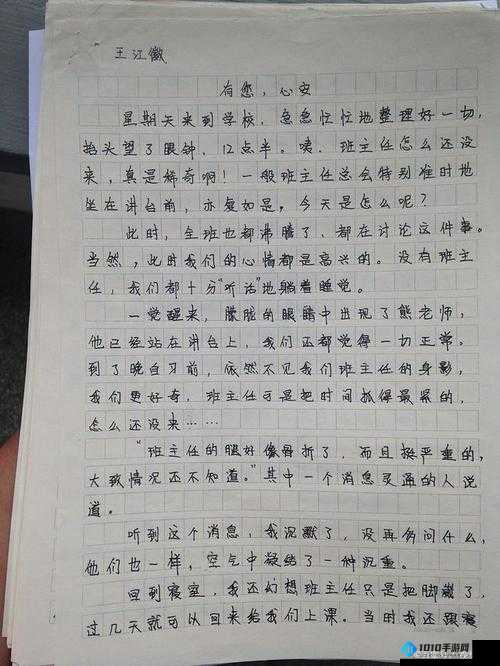 王江徽
有您，心安
星期天来到学校，急急忙忙地整理好一切，
抬头望了眼钟，12点半。咦，班主任怎么还没
来，真是稀奇啊！一般班主任总会特别准时地
坐在讲台前，亦复如是，今天是怎么呢？
此时，全班也都沸腾了，都在讨论这件事。
当然，此时我们的心情都是高兴的。没有班主
任，我们都十分“听话”地躺着睡觉。
一觉醒来，朦胧的眼睛中出现了熊老师，
他已经站在讲台上，我们还都觉得一切正常。
到了晚自习前，依然不见我们班主任的身影，
我们更好奇，班主任可是把时间抓得最紧的，
怎么还没来……
“班主任的腿好像骨折了，而且挺严重的，
大致情况还不知道。”其中一个消息灵通的人说
道。
听到这个消息，我沉默了，没再多问什么，
他们也一样，空气中凝结了一种沉重。
回到寝室，我还幻想班主任只是把脚崴了，
过几天就可以回来给我们上课。当时我还跟寝
1010手游网